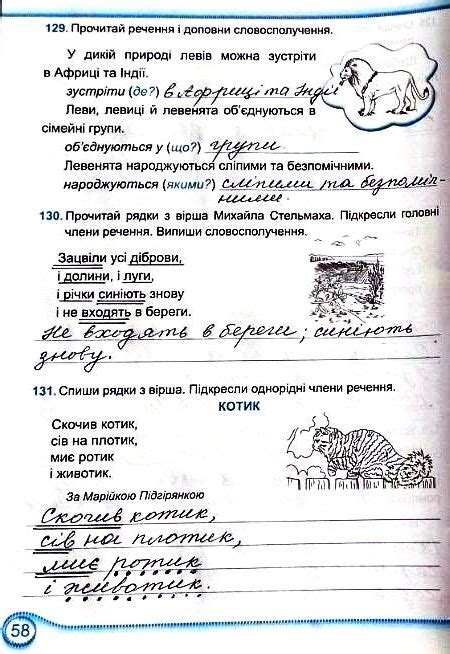 129. Прочитай речення і доповни словосполучення.
У дикій природі левів можна зустріти
в Африці та Індії.
зустріти (де?) в Африці та Індії
Леви, левиці й левенята об'єднуються в
сімейні групи.
об'єднуються у (що?) групи
Левенята народжуються сліпими та безпомічними.
народжуються (якими?) сліпими та безпоміч-
ними.
130. Прочитай рядки з вірша Михайла Стельмаха. Підкресли головні
члени речення. Випиши словосполучення.
Зацвіли усі діброви,
і долини, і луги,
і річки синіють знову
і не входять в береги.
Не входять в береги; синіють
знову.
131. Спиши рядки з вірша. Підкресли однорідні члени речення.
КОТИК
Скочив котик,
сів на плотик,
миє ротик
і животик.
За Марійкою Підгірянкою
Скочив котик,
сів на плотик,
миє ротик
і животик.
58